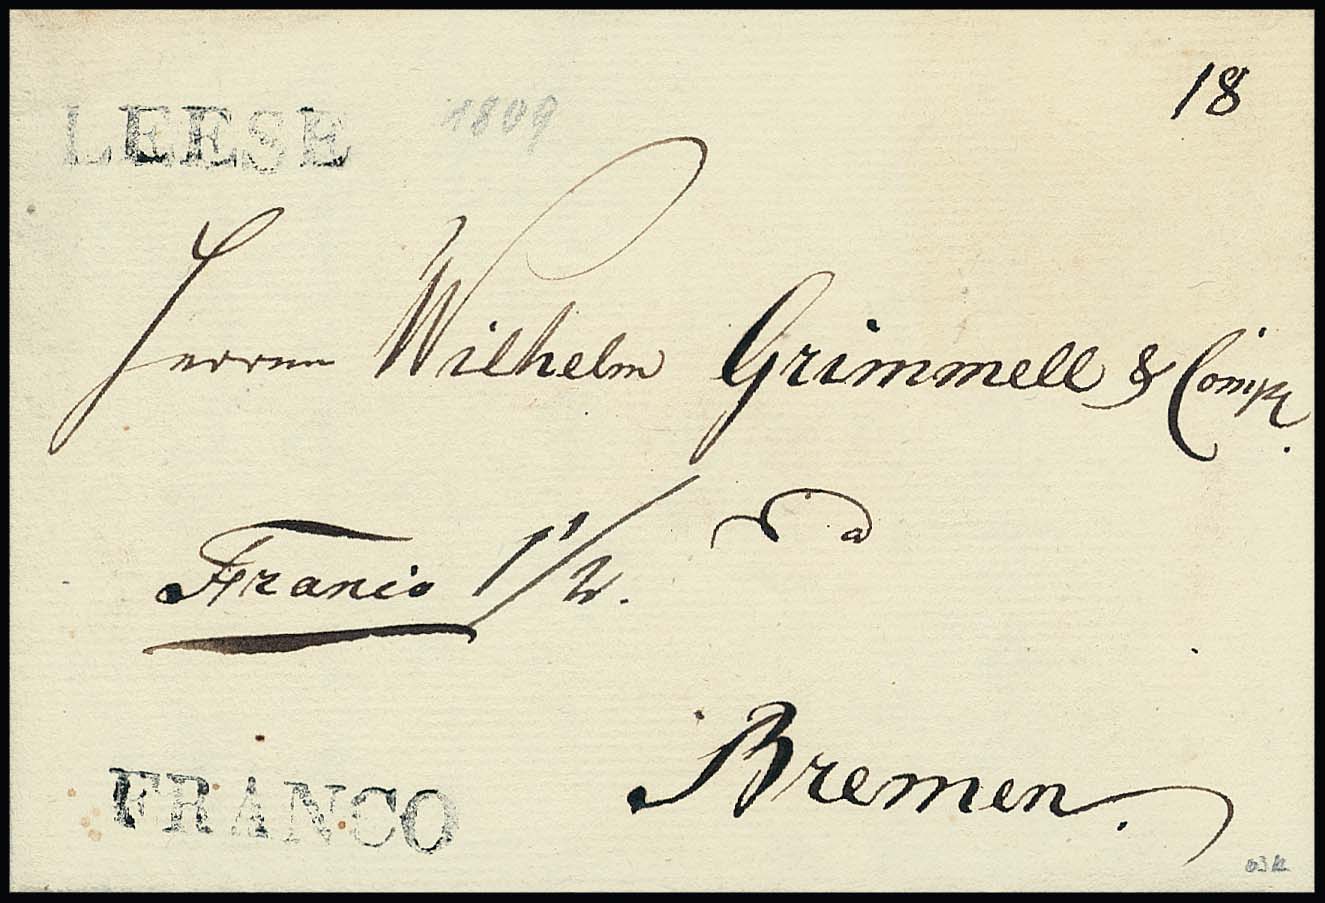 LEESE 1809 18
Herrn Wilhelm Grimmell & Comp.
Franco 1 1/2.
a
Bremen.
FRANCO